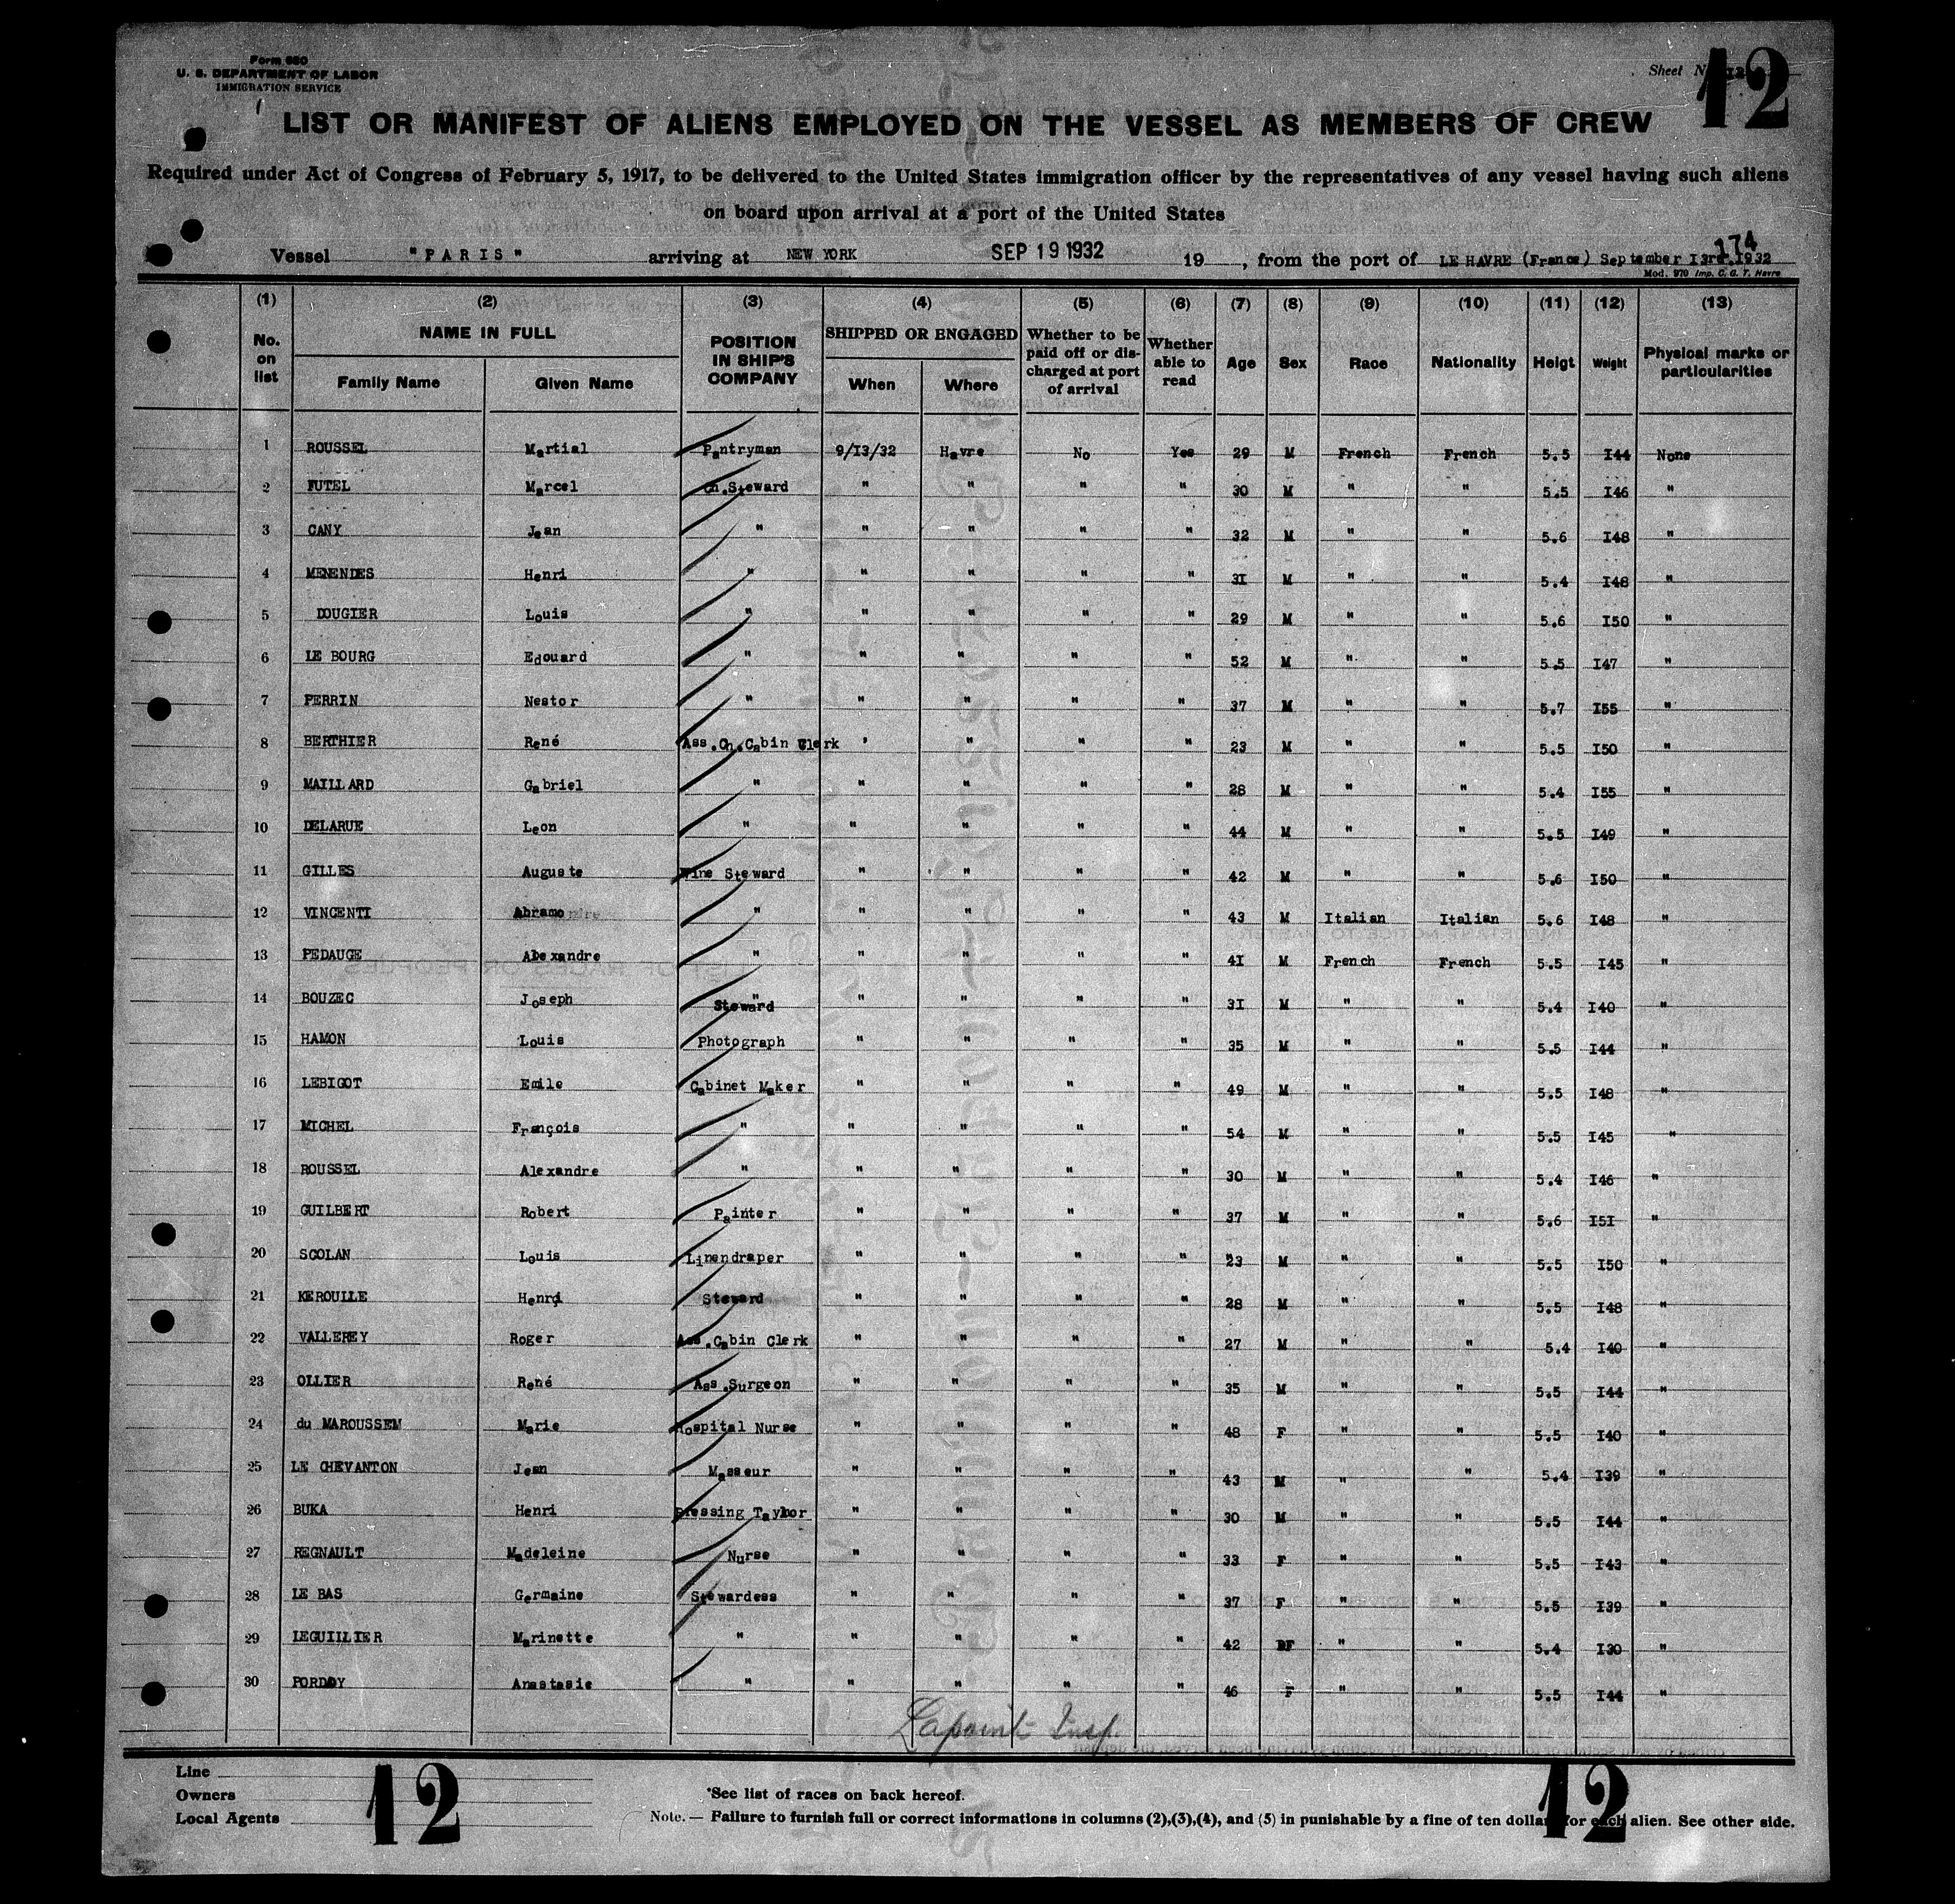 Form 680
U. S. DEPARTMENT OF LABOR
IMMIGRATION SERVICE
Sheet No. 12
12
LIST OR MANIFEST OF ALIENS EMPLOYED ON THE VESSEL AS MEMBERS OF CREW
Required under Act of Congress of February 5, 1917, to be delivered to the United States immigration officer by the representatives of any vessel having such aliens
on board upon arrival at a port of the United States
174
Vessel "PARIS" arriving at NEW YORK SEP 19 1932 19 , from the port of LE HAVRE (France) September I3rd.1932
Mod. 970 Imp. C. G. T. Havre
(1) (2) (3) (4) (5) (6) (7) (8) (9) (10) (11) (12) (13)
No. on list NAME IN FULL Family Name Given Name POSITION IN SHIP'S COMPANY SHIPPED OR ENGAGED When Where Whether to be paid off or discharged at port of arrival Whether able to read Age Sex Race Nationality Heigt Weight Physical marks or particularities
1 ROUSSEL Martial Pantryman 9/13/32 Havre No Yes 29 M French French 5.5 I44 None
2 FUTEL Marcel Ch.Steward " " " " 30 M " " 5.5 I46 "
3 CANY Jean " " " " " 32 M " " 5.6 I48 "
4 MENENDES Henri " " " " " 3I M " " 5.4 I48 "
5 DOUGIER Louis " " " " " 29 M " " 5.6 I50 "
6 LE BOURG Edouard " " " " " 52 M " " 5.5 I47 "
7 PERRIN Nestor " " " " " 37 M " " 5.7 I55 "
8 BERTHIER René Ass.Ch.Cabin Clerk ' " " " 23 M " " 5.5 I50 "
9 MAILLARD Gabriel " " " " " 28 M " " 5.4 I55 "
10 DELARUE Leon " " " " " 44 M " " 5.5 I49 "
11 GILLES Auguste Wine Steward " " " " 42 M " " 5.6 I50 "
12 VINCENTI Abramo " " " " " 43 M Italian Italian 5.6 I48 "
13 PEDAUGE Alexandre " " " " " 4I M French French 5.5 I45 "
14 BOUZEC Joseph " Steward " " " " 3I M " " 5.4 I40 "
15 HAMON Louis Photograph " " " " 35 M " " 5.5 I44 "
16 LEBIGOT Emile Cabinet Maker " " " " 49 M " " 5.5 I48 "
17 MICHEL François " " " " " 54 M " " 5.5 I45 "
18 ROUSSEL Alexandre " " " " " 30 M " " 5.4 I46 "
19 GUILBERT Robert Painter " " " " 37 M " " 5.6 I5I "
20 SCOLAN Louis Linendraper " " " " 23 M " " 5.5 I50 "
21 KEROULLE Henri Steward " " " " 28 M " " 5.5 I48 "
22 VALLEREY Roger Ass.Cabin Clerk " " " " 27 M " " 5.4 I40 "
23 OLLIER René Ass.Surgeon " " " " 35 M " " 5.5 I44 "
24 du MAROUSSEM Marie Hospital Nurse " " " " 48 F " " 5.5 I40 "
25 LE CHEVANTON Jean Masseur " " " " 43 M " " 5.4 I39 "
26 BUKA Henri Pressing Taylor " " " " 30 M " " 5.5 I44 "
27 REGNAULT Madeleine Nurse " " " " 33 F " " 5.5 I43 "
28 LE BAS Germaine Stewardess " " " " 37 F " " 5.5 I39 "
29 LEGUILLIER Marinette " " " " " 42 F " " 5.4 I30 "
30 PORDOY Anastasie " " " " " 46 F " " 5.5 I44 "
Lapoint Insp.
Line
Owners
Local Agents
12
*See list of races on back hereof.
Note. — Failure to furnish full or correct informations in columns (2),(3),(4), and (5) in punishable by a fine of ten dollars for each alien. See other side.
12